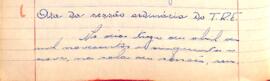 Ata da sessão ordinária do T.R.E.
No dia treze de abril de
mil novecentos e cinquenta e
nove, na sala das sessões, em